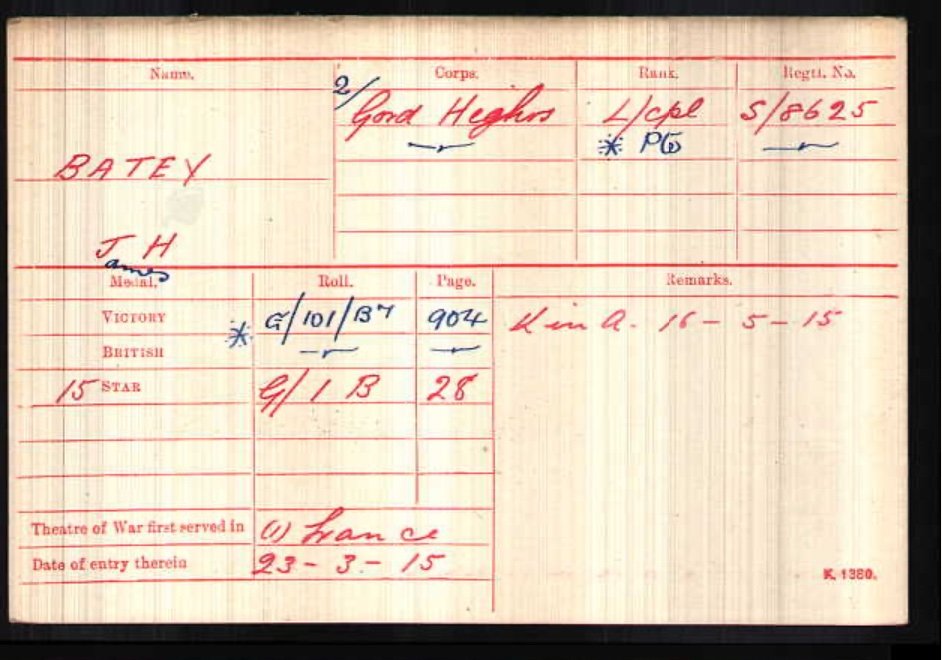 Name. Corps. Rank. Regtl. No.
2/ Gord Highrs L/cpl S/8625
* PG
BATEY
J H
ames
Medal. Roll. Page. Remarks.
VICTORY * G/101/B7 904 K in A. 16-5-15
BRITISH
15 STAR G/1 B 28
Theatre of War first served in (1) France
Date of entry therein 23-3-15
K. 1380.